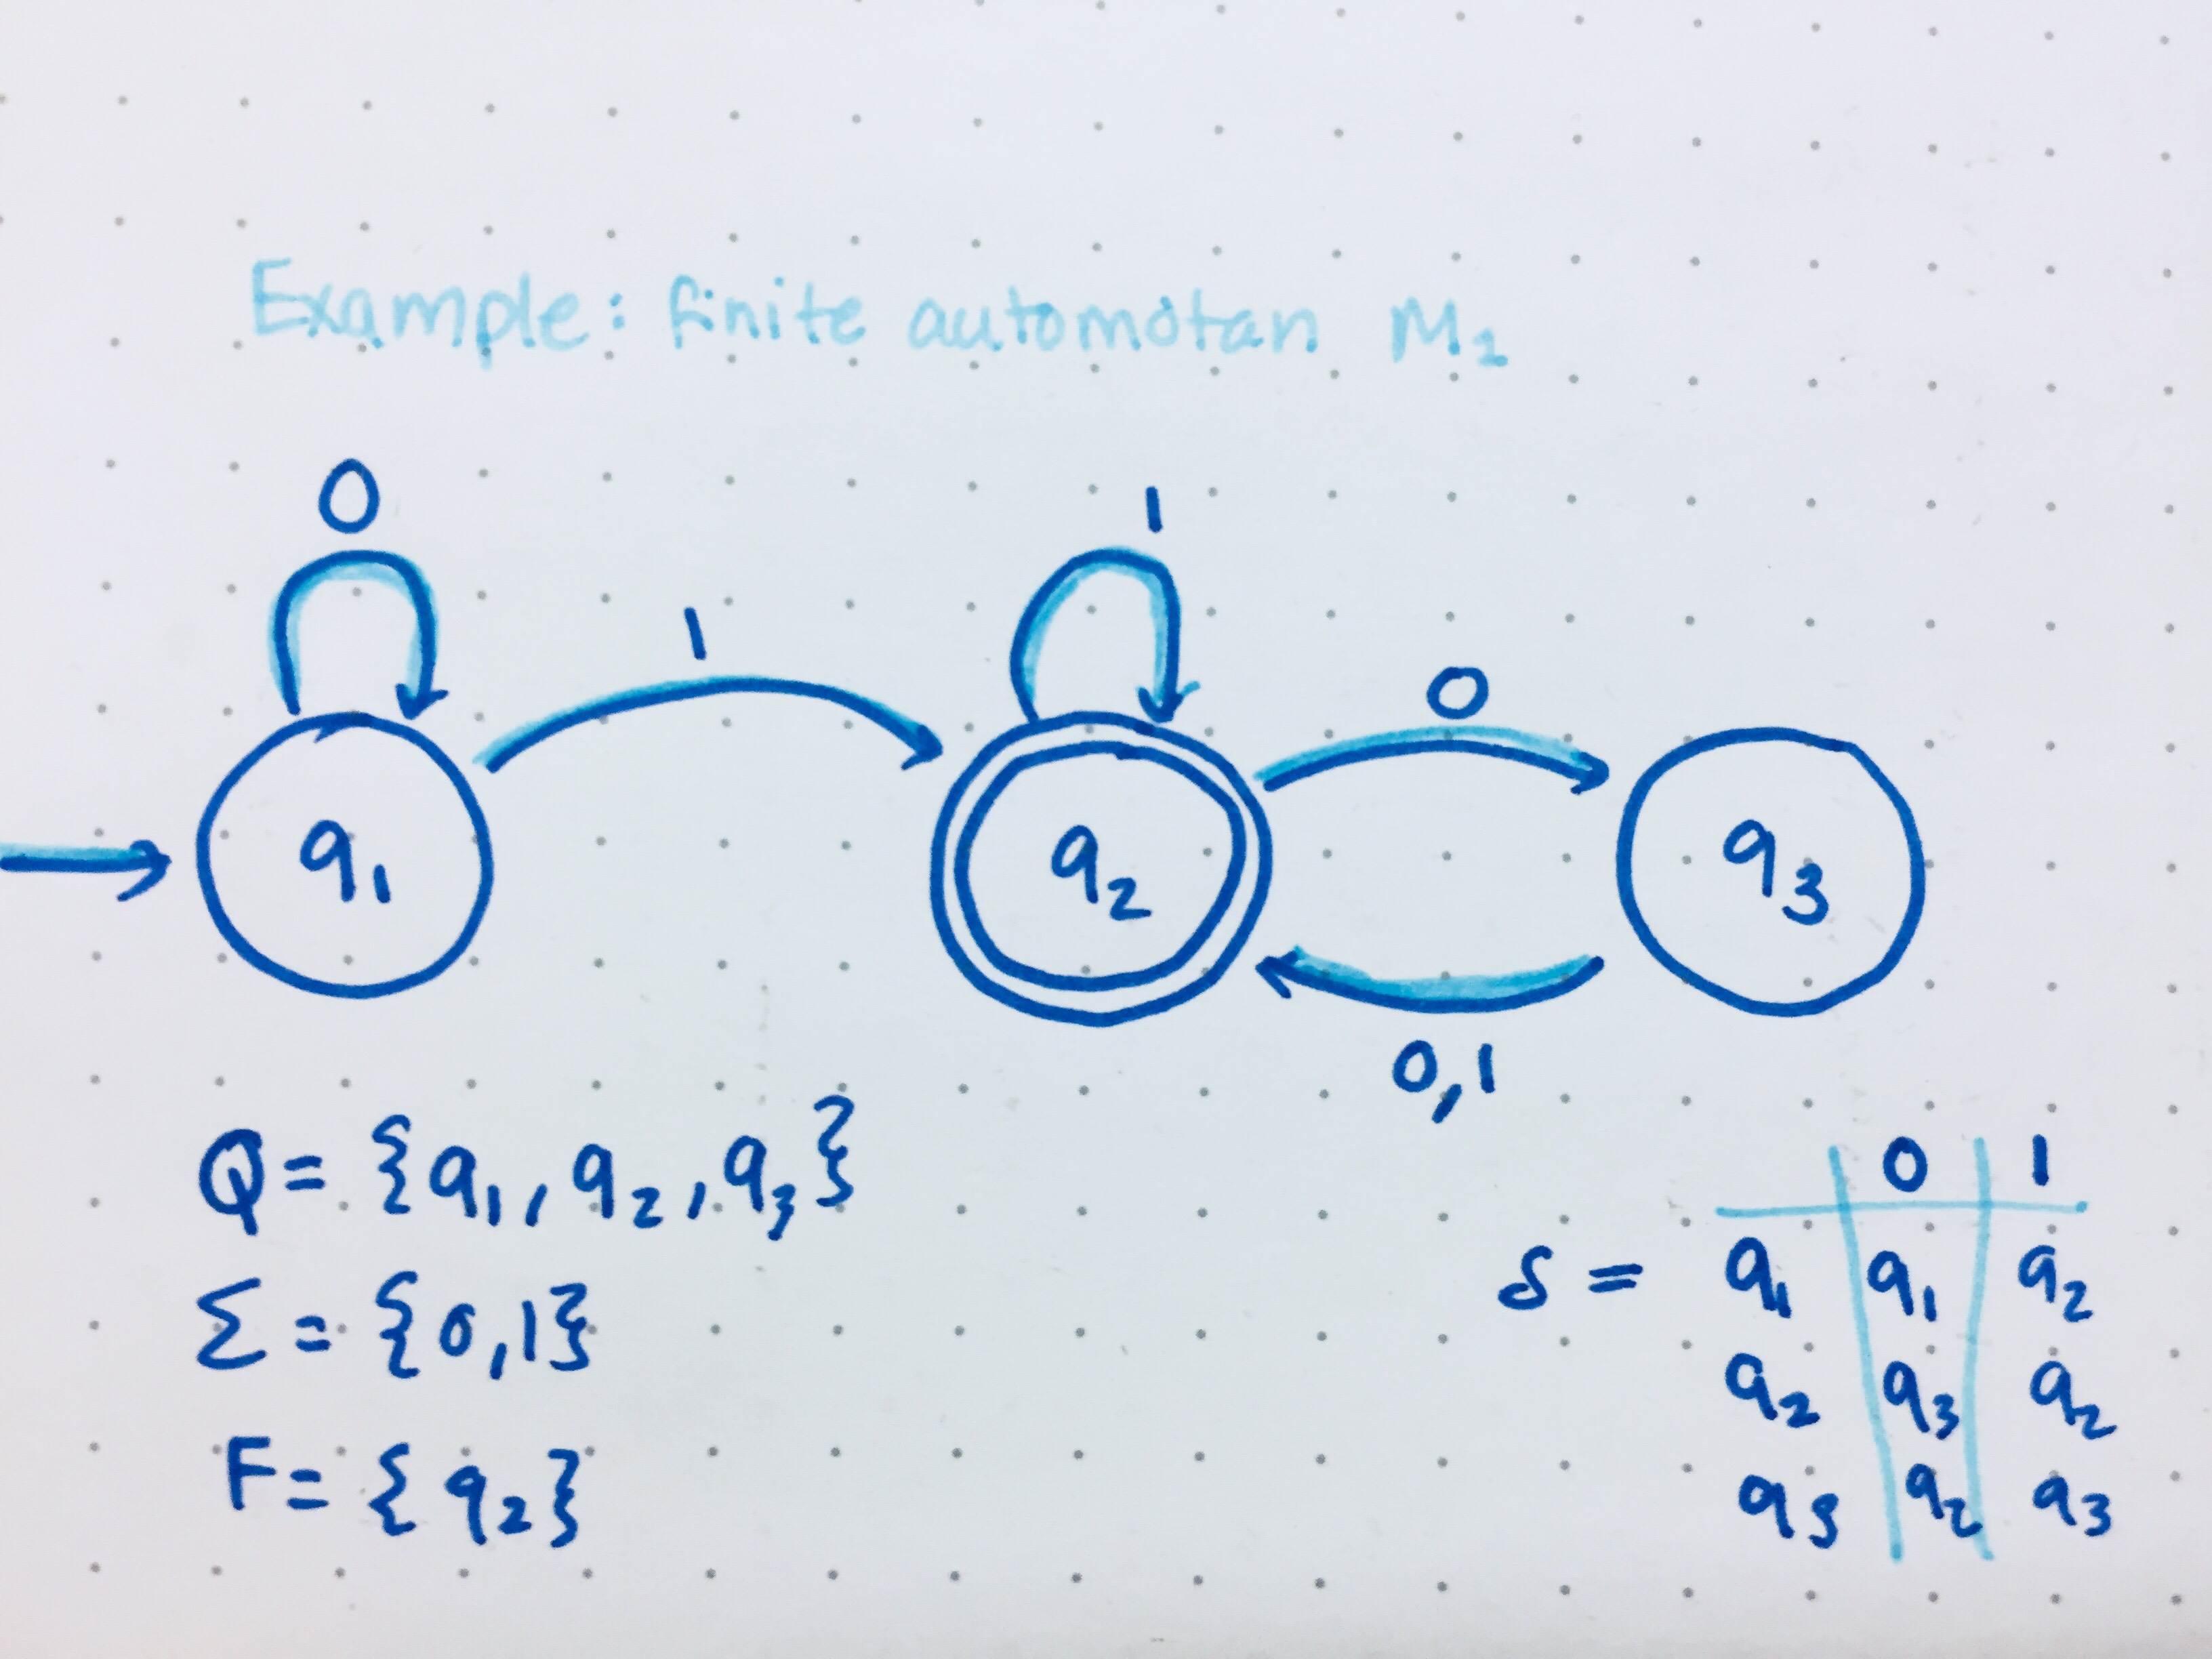 Example: finite automotan M₂
0
1
1
0
q₁
q₂
q₃
0,1
Q = {q₁, q₂, q₃}
Σ = {0,1}
F = {q₂}
0 1
δ = q₁ q₁ q₂
q₂ q₃ q₂
q₃ q₂ q₃